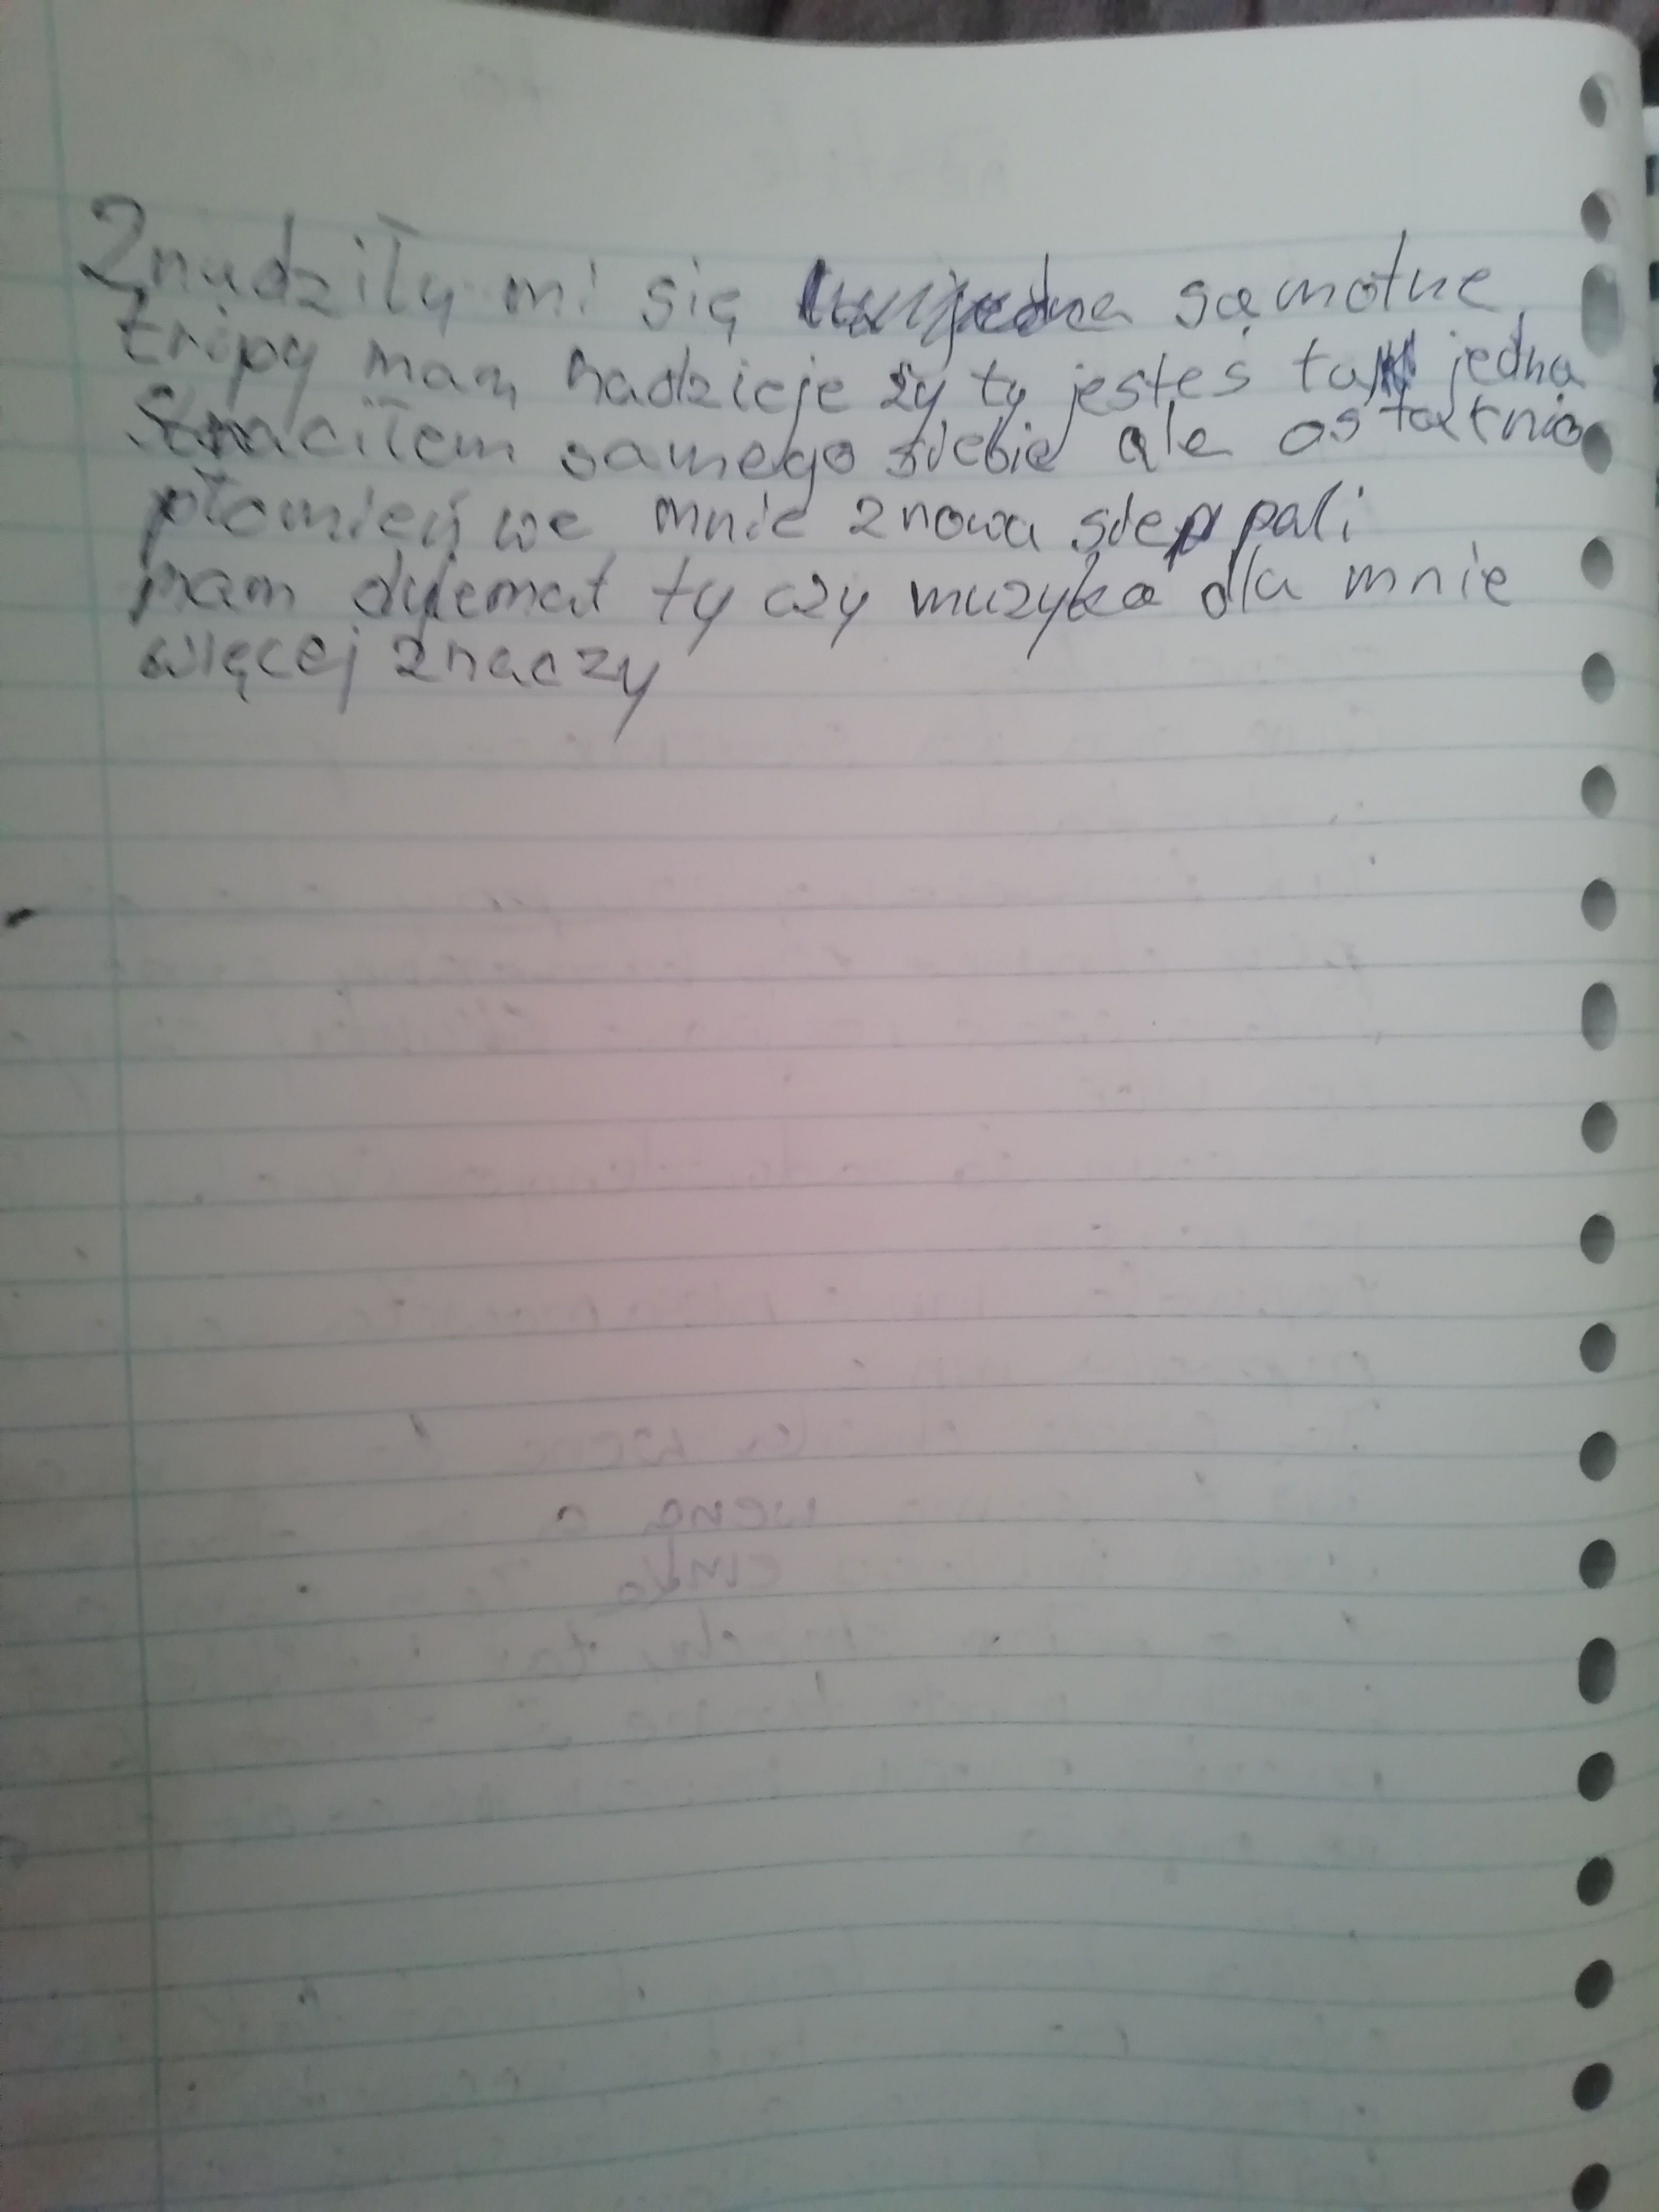 Znudziły mi się samotne
tripy mam nadzieje ży ty jesteś tą jedną
Straciłem samego siebie ale ostatnio
płomień we mnie znowu sie pali
mam dylemat ty czy muzyka dla mnie
więcej znaczy